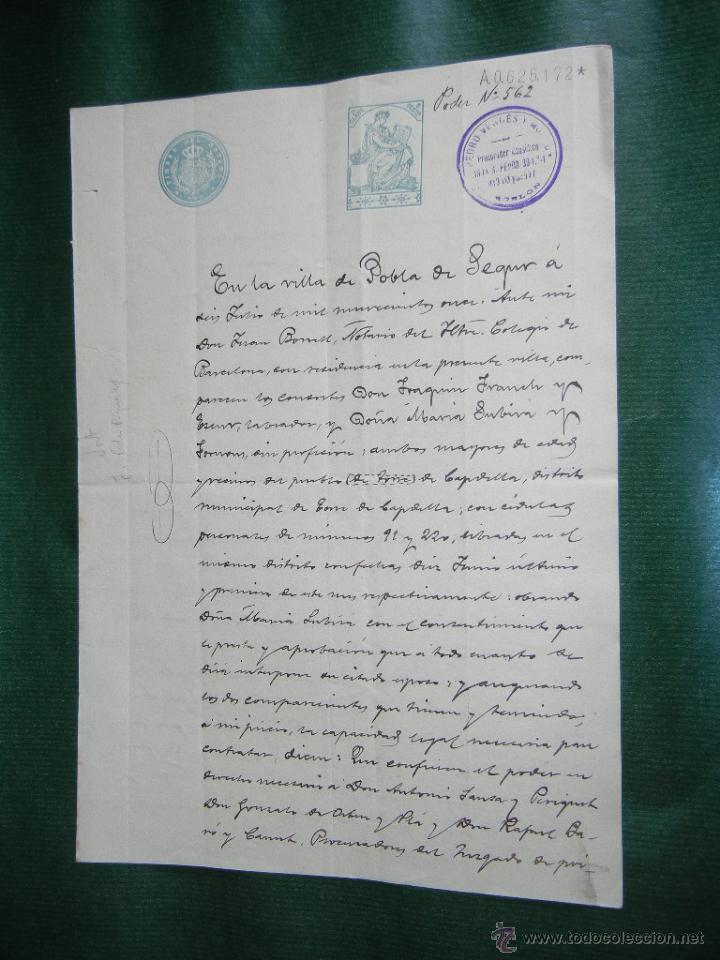 A0625172*
Poder Nº 562
PEDRO VERGÉS Y
Procurador
En la villa de Pobla de Segur á
seis Julio de mil novecientos once. Ante mi
Don Juan Borrell, Notario del Iltre. Colegio de
Barcelona, con residencia en la presente villa, com-
parecen los consortes Don Joaquin Franch y
labrador, y Doña Maria Subirá y
sin profesion; ambos mayores de edad
y vecinos del pueblo (de Torre) de Capdella, distrito
municipal de Torre de Capdella; con cédulas
personales de números 91 y 220, libradas en el
mismo distrito con fechas diez Junio último
y primero de este mes respectivamente: obrando
Doña Maria Subirá con el consentimiento que
le presta y aprobación que á todo cuanto se
dirá interpone su citado esposo; y asegurando
los dos comparecientes que tienen y teniendo,
á mi juicio, la capacidad legal necesaria para
contratar, dicen: Que confieren el poder en
derecho necesario á Don Antonio Sansa y Periquet
Don Gonzalo de y Plá y Don Rafael Ba-
ró y Canut, Procuradores del Juzgado de pri-
www.todocoleccion.net